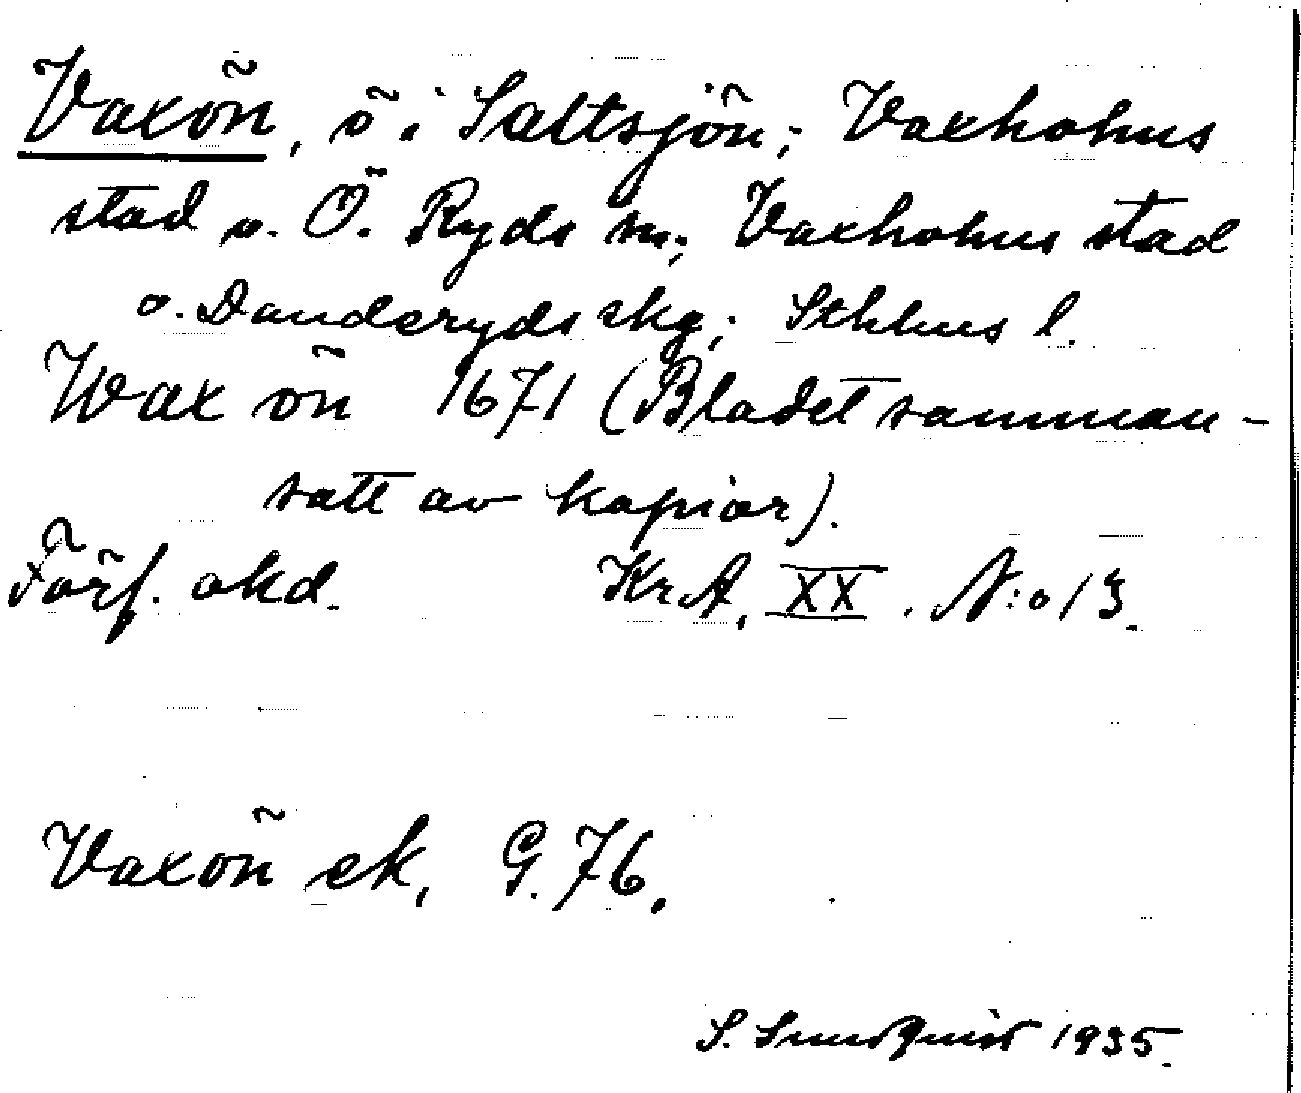 Vaxön, ö i Saltsjön; Vaxholms
stad o. Ö. Ryds sn; Vaxholms stad
o. Danderyds skg; Sthlms l.
Wax ön 1671 (Bladet samman-
satt av kopior).
Förf. okd. KrA, XX. N:o 13.
Vaxön ek, G. 76.
S. Sundquist 1935.